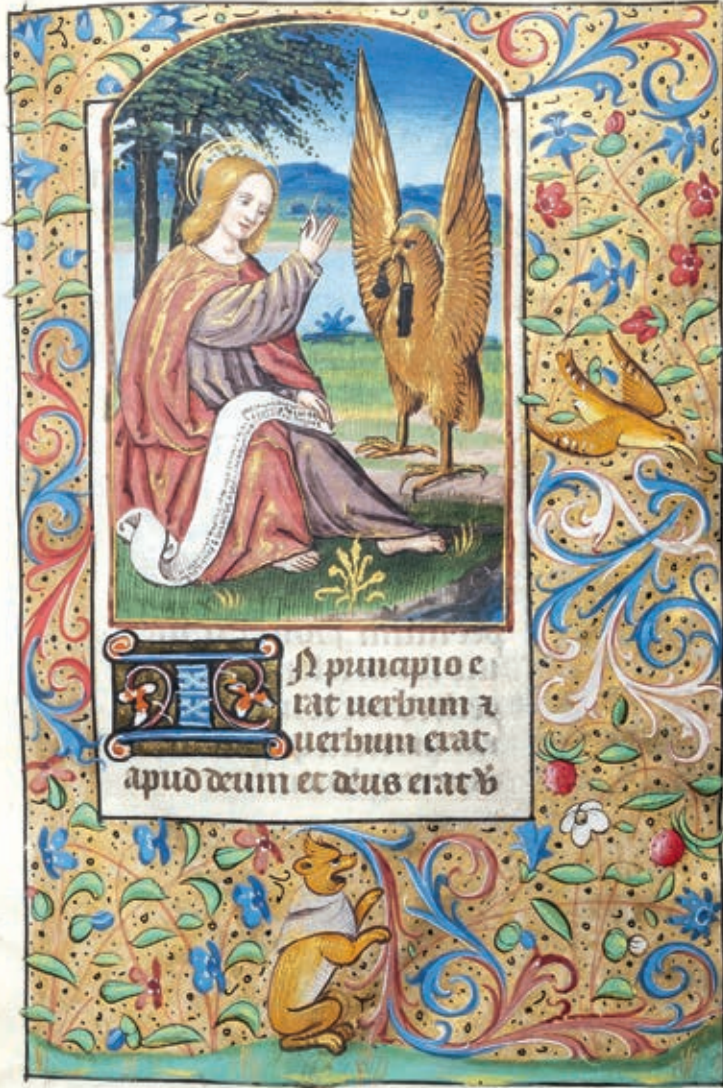 IN principio e
rat uerbum ⁊
uerbum erat
apud deum et deus erat v̄